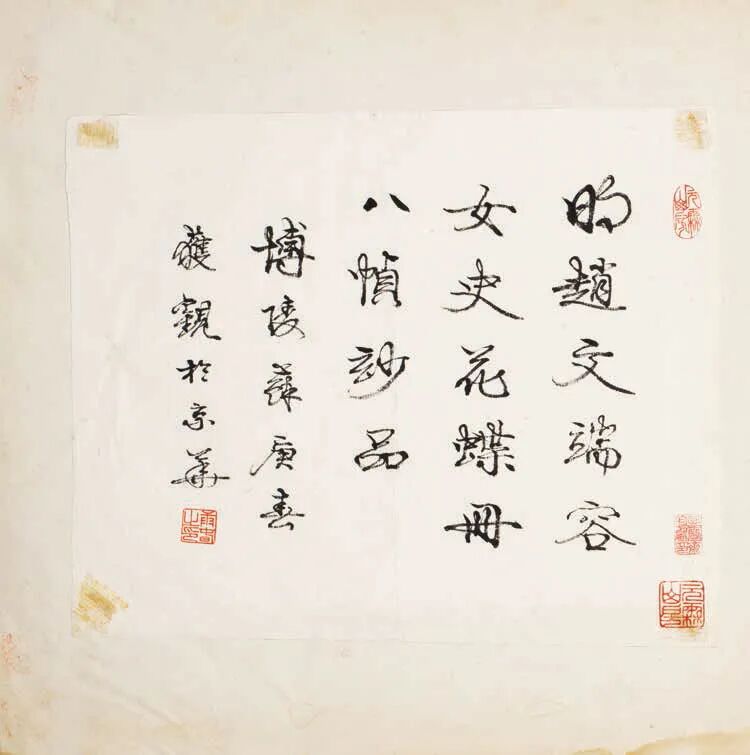 明趙文端容
女史花蝶冊
八幀玅品
博陵蘇庚春
獲觀於京華
庚春之印